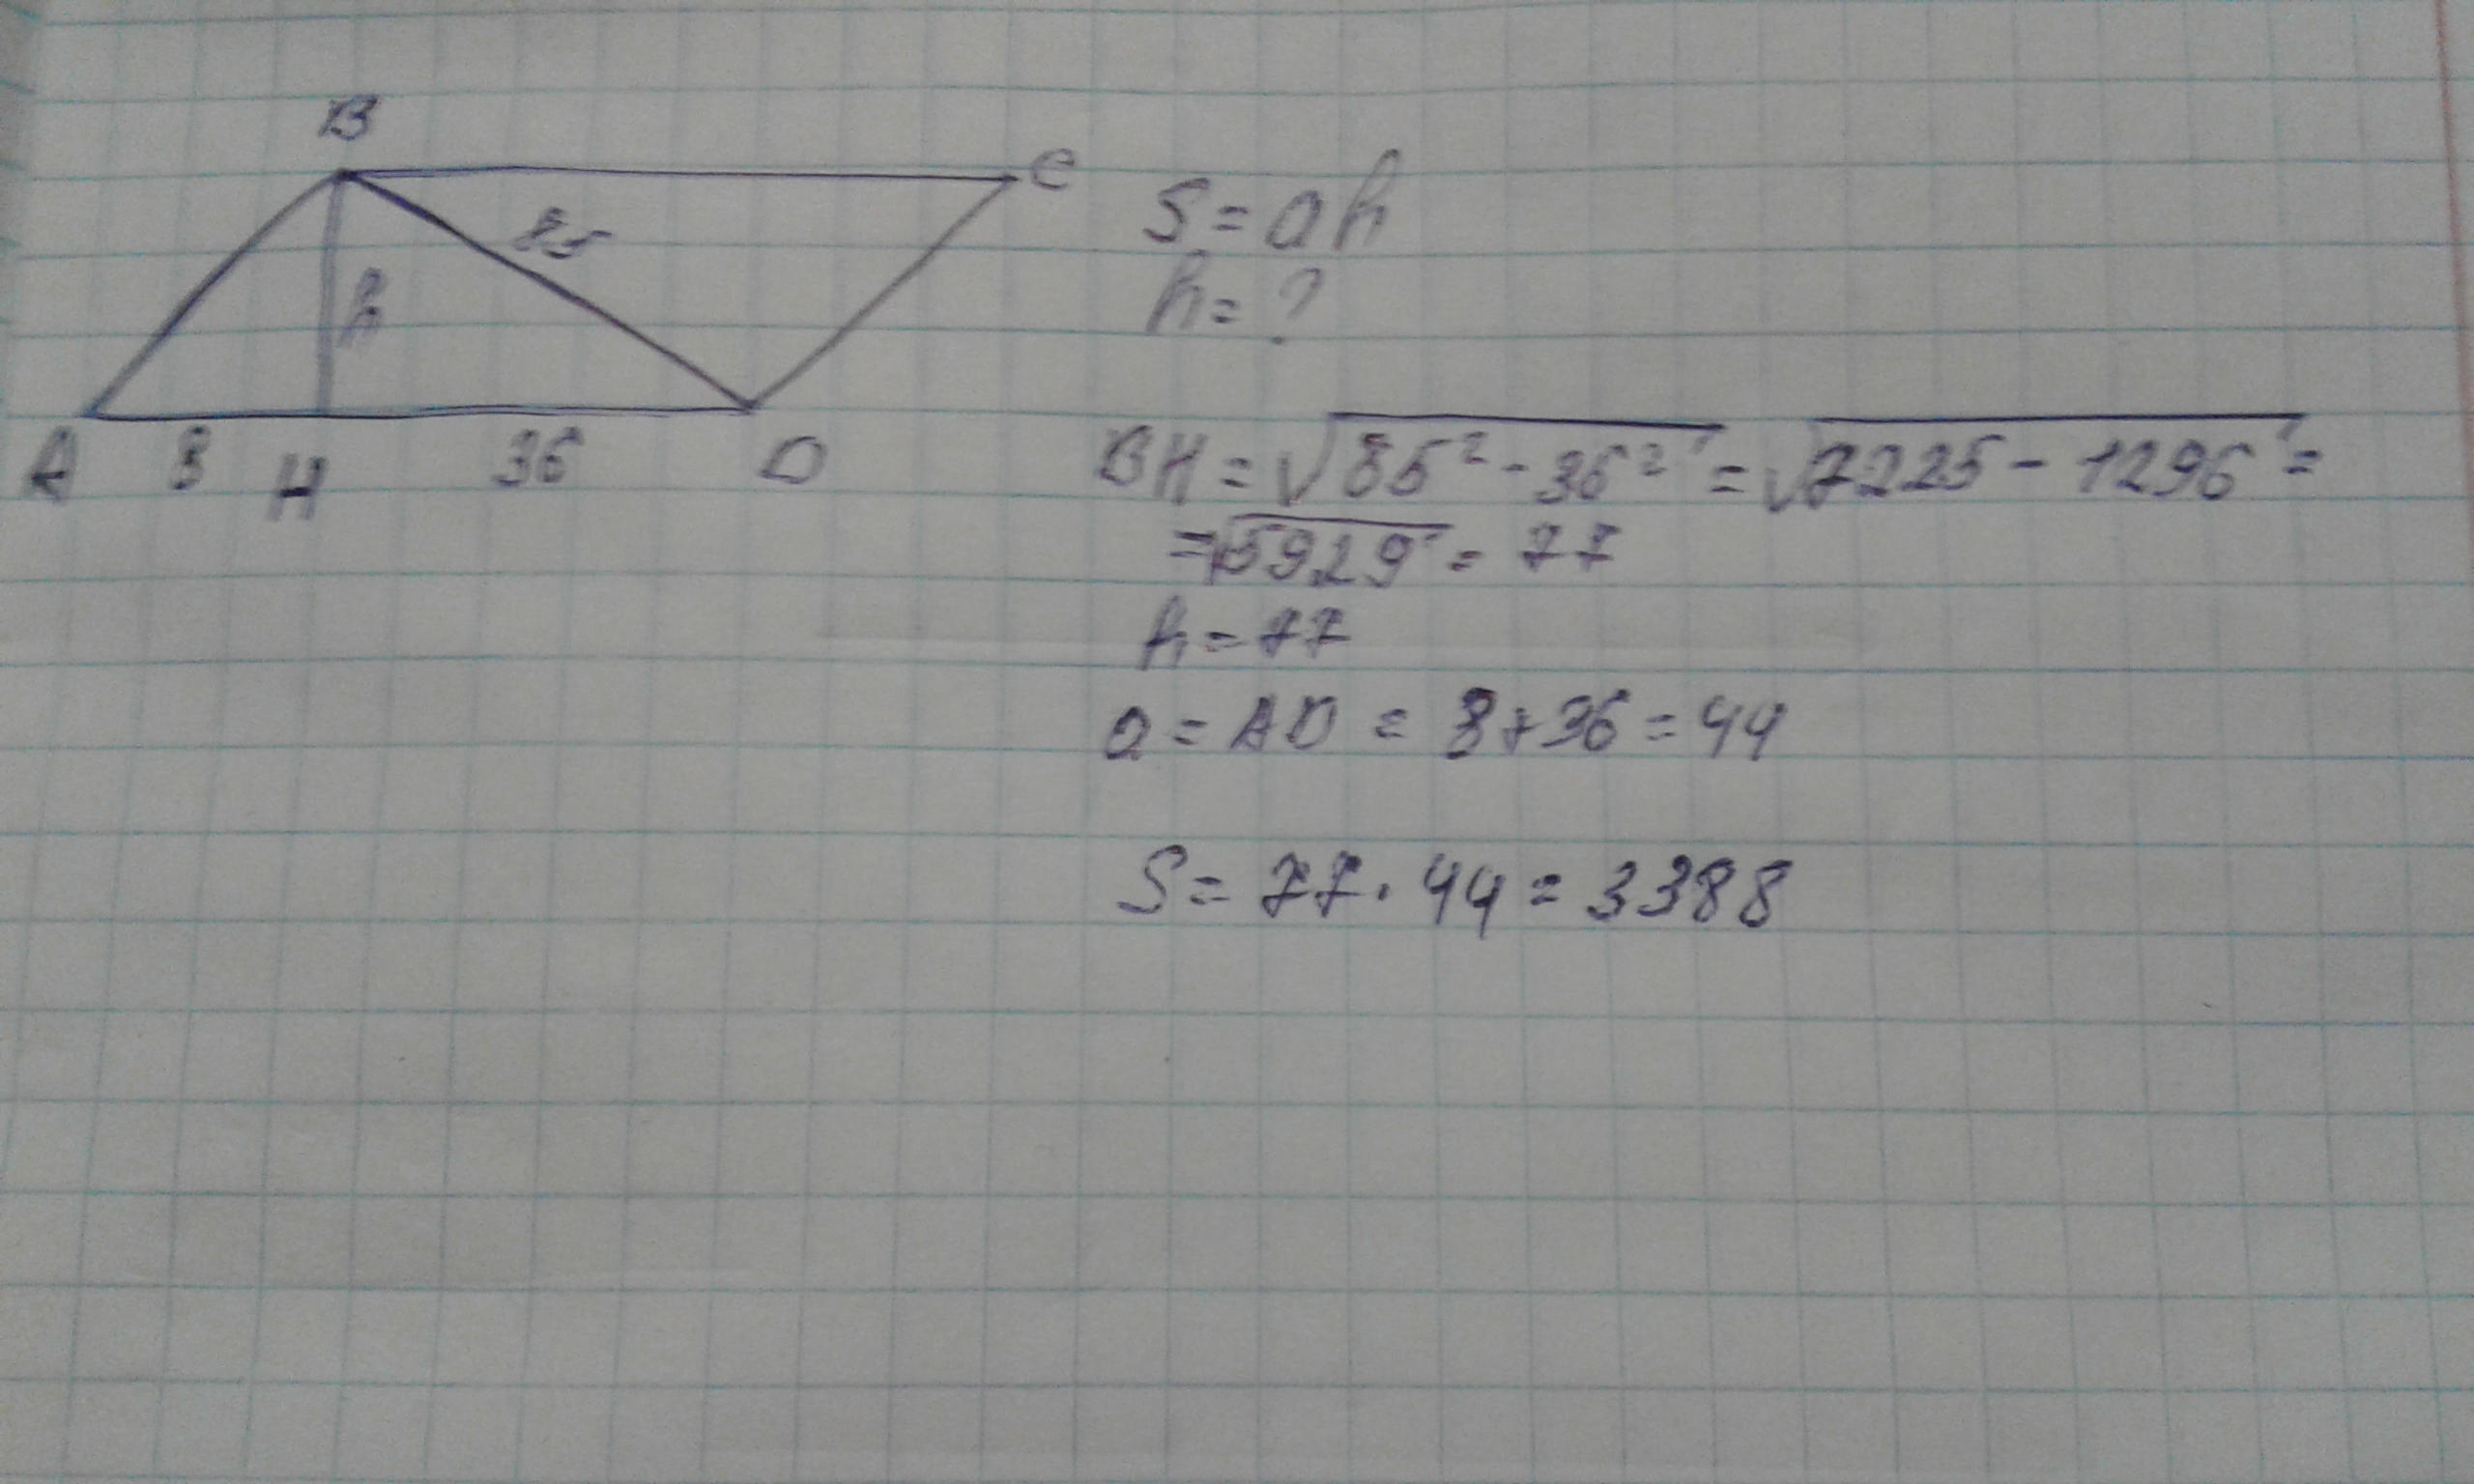 B
C
85
h
A 8 H 36 D
S = ah
h = ?
BH = √85² - 36² = √7225 - 1296 =
= √5929 = 77
h = 77
a = AD = 8 + 36 = 44
S = 77 · 44 = 3388